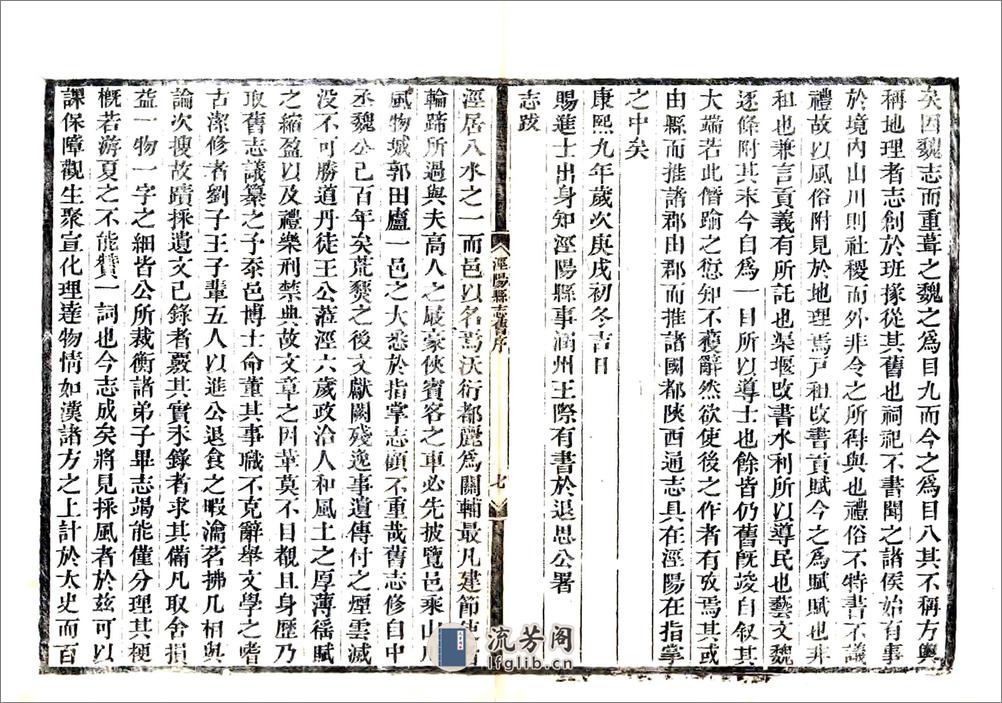 矣因魏志而重葺之魏之爲目九而今之爲目八其不稱方輿
稱地理者志創於班掾從其舊也祠祀不書聞之諸侯始有事
於境內山川則社稷而外非令之所得與也禮俗不特書不議
禮故以風俗附見於地理焉戸租改書貢賦今之爲賦賦也非
租也兼言貢義有所託也渠堰改書水利所以導民也藝文魏
逐條附其末今自爲一目所以導士也餘皆仍舊旣竣自叙其
大端若此僭踰之愆知不獲辭然欲使後之作者有攷焉其或
由縣而推諸郡由郡而推諸國都陝西通志具在涇陽在指掌
之中矣
康熙九年歲次庚戌初冬吉日
賜進士出身知涇陽縣事涵州王際有書於退思公署
志跋
涇陽縣志舊序
七
涇居八水之一而邑以名焉沃衍都麗爲關輔最凡建節
輪蹄所過與夫高人之屐豪俠賓客之車必先披覽邑乘山
風物城郭田廬一邑之大悉於指掌志顧不重哉舊志修自中
丞魏公已百年矣荒燹之後文獻闕殘逸事遺傳付之煙雲滅
没不可勝道丹徒王公蒞涇六歲政洽人和風土之厚薄徭賦
之縮盈以及禮樂刑禁典故文章之因革莫不目覩且身歷乃
取舊志議纂之子泰邑博士命董其事職不克辭舉文學之嗜
古潔修者劉子王子輩五人以進公退食之暇瀹茗拂几相與
論次搜故蹟採遺文已錄者覈其實未錄者求其備凡取舍損
益一物一字之細皆公所裁衡諸弟子畢志竭能僅分理其梗
槪若游夏之不能贊一詞也今志成矣將見採風者於兹可以
課保障觀生聚宣化理達物情如漢諸方之上計於太史而百
流芳阁
lfglib.cn